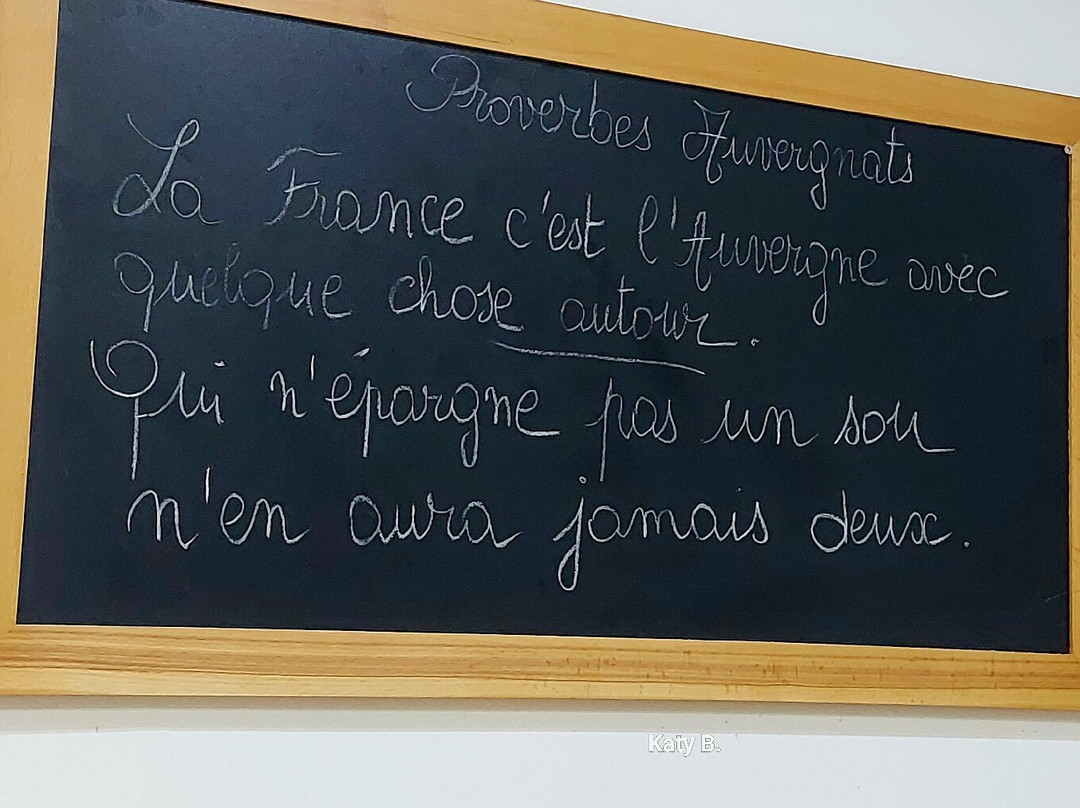 Proverbes Auvergnats
La France c'est l'Auvergne avec
quelque chose autour.
Qui n'épargne pas un sou
n'en aura jamais deux.
Katy B.